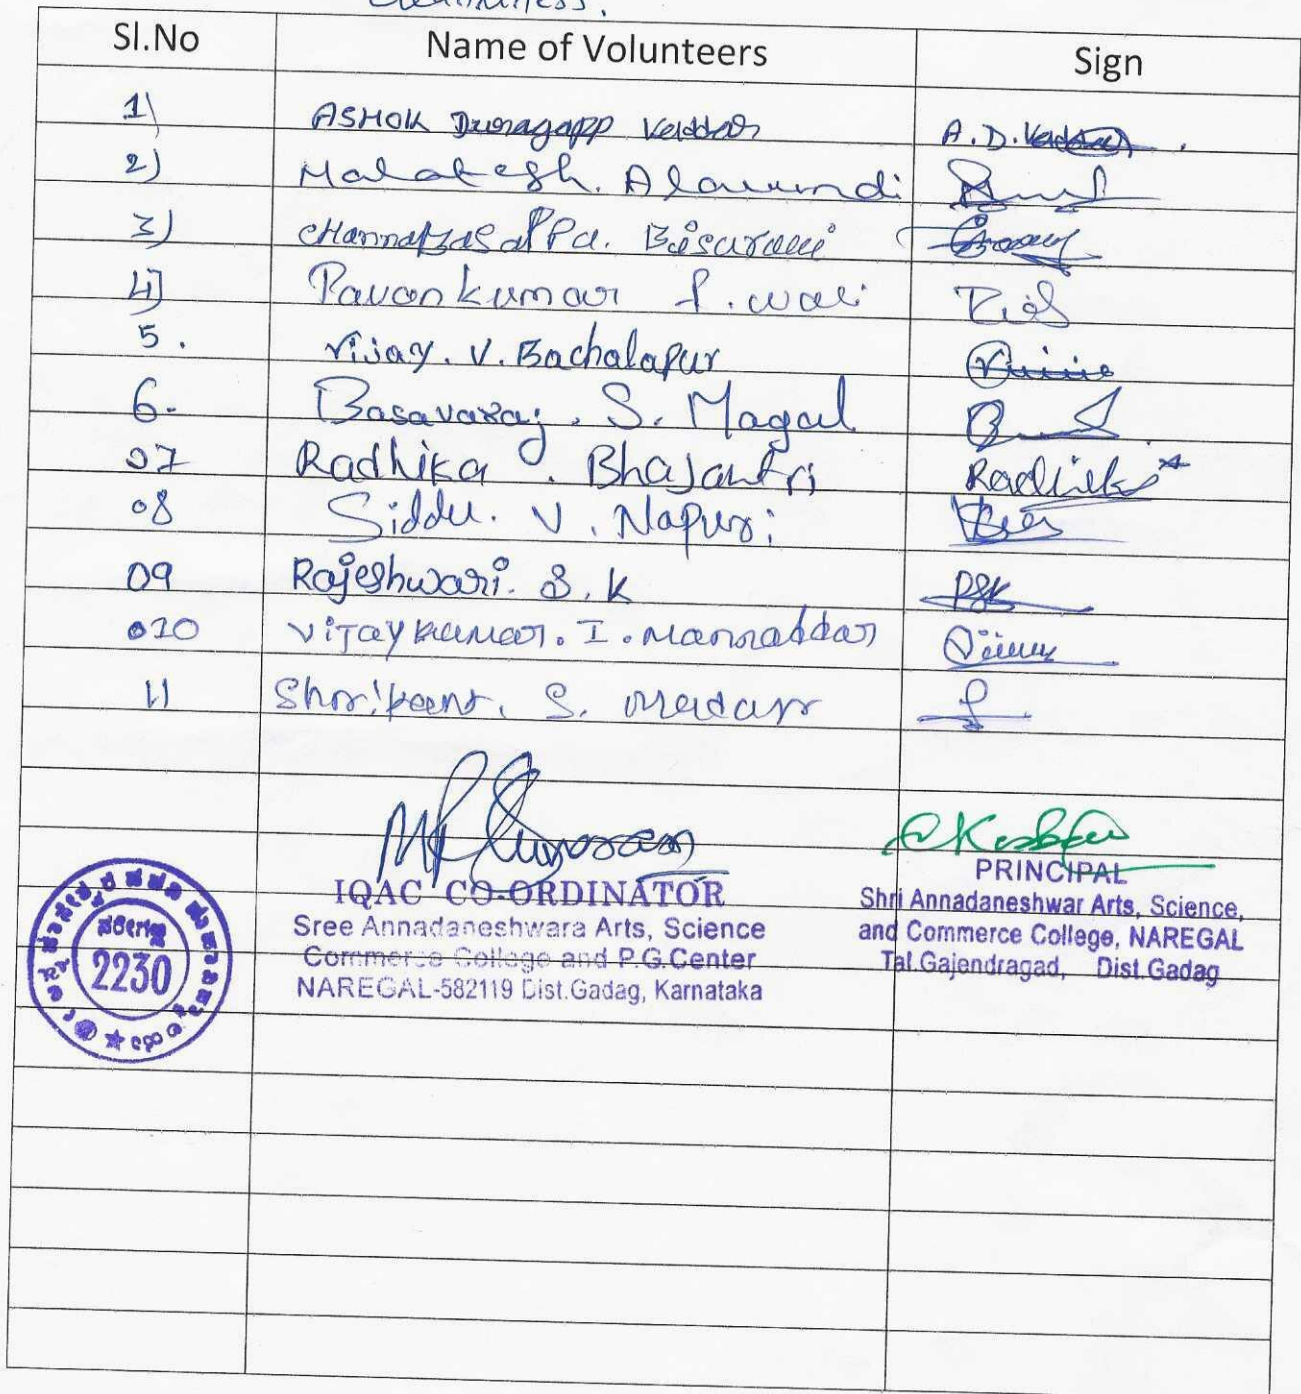 Cleanliness.
Sl.No Name of Volunteers Sign
1) ASHOK Duragapp Vaddar A.D. Vaddar
2) Malatesh. Alawundi
3) cHannabasappa. Bisaralli
4) Pavankumar P. wali
5. Vijay. V. Bachalapur
6. Basavaraj. S. Magal
07 Radhika. Bhajantri Radhika
08 Siddu. V. Napuri
09 Rajeshwari. S. K RSK
010 Vijaykumar. I. Mannaddar
11 Shrikant. S. Madar
IQAC CO-ORDINATOR
Sree Annadaneshwara Arts, Science
Commerce College and P.G.Center
NAREGAL-582119 Dist.Gadag, Karnataka
PRINCIPAL
Shri Annadaneshwar Arts, Science,
and Commerce College, NAREGAL
Tal.Gajendragad, Dist.Gadag
ನರೇಗಲ್ಲ
2230